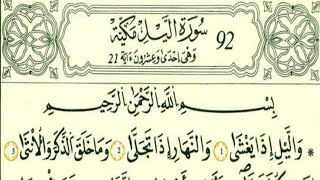 سُورَةُ الَّيْلِ مَكِّيَّةٌ 92
وَهِيَ إِحْدَى وَعِشْرُونَ ءَايَة 21
بِسْمِ اللَّهِ الرَّحْمَٰنِ الرَّحِيمِ
وَالَّيْلِ إِذَا يَغْشَىٰ 1 وَالنَّهَارِ إِذَا تَجَلَّىٰ 2 وَمَا خَلَقَ الذَّكَرَ وَالْأُنثَىٰ 3